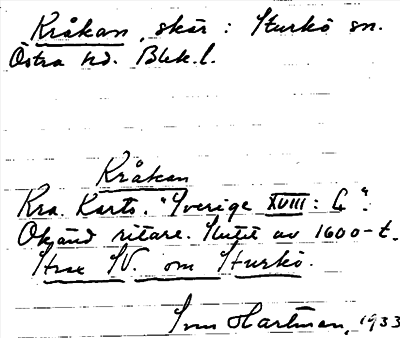 Kråkan, skär: Sturkö sn.
Östra hd. Blek. l.
Kråkan
Kra. Karts. "Sverige XVIII: 4".
Okänd ritare. Slutet av 1600-t.
Strax SV. om Sturkö.
Hartman, 1933